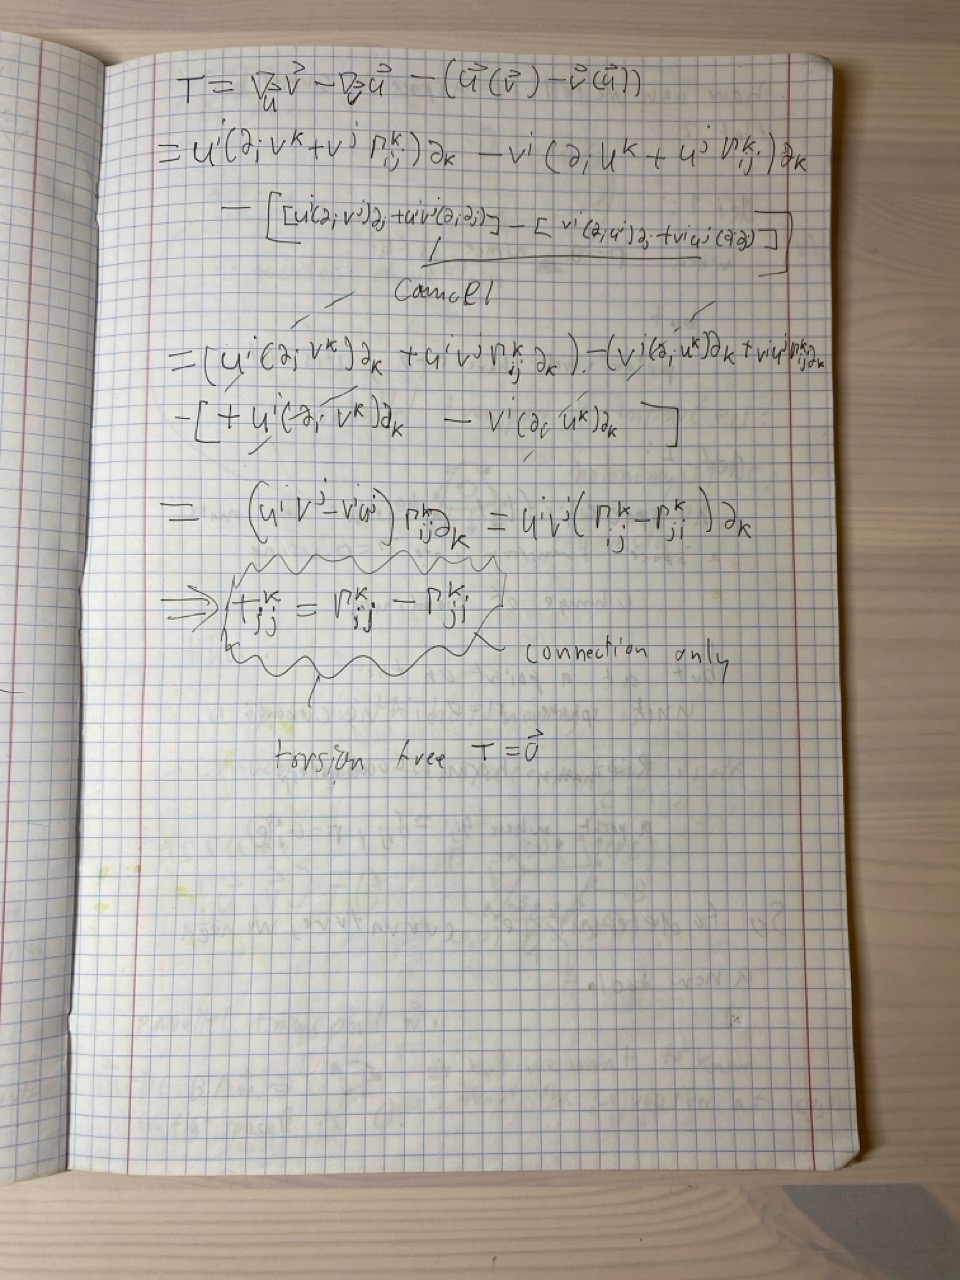 T = ∇_u⃗ v⃗ − ∇_v⃗ u⃗ − (u⃗(v⃗) − v⃗(u⃗))
= uⁱ(∂ᵢ vᵏ + vʲ Γᵢⱼᵏ)∂ₖ − vⁱ(∂ᵢ uᵏ + uʲ Γᵢⱼᵏ)∂ₖ
− [[uⁱ(∂ᵢ vʲ)∂ⱼ + uⁱvʲ(∂ᵢ∂ⱼ)] − [vⁱ(∂ᵢuʲ)∂ⱼ + vⁱuʲ(∂ᵢ∂ⱼ)]]
Cancel
= (uⁱ(∂ᵢ vᵏ)∂ₖ + uⁱvʲ Γᵢⱼᵏ ∂ₖ) − (vⁱ(∂ᵢ uᵏ)∂ₖ + vⁱuʲΓᵢⱼᵏ∂ₖ
− [+ uⁱ(∂ᵢ vᵏ)∂ₖ − vⁱ(∂ᵢ uᵏ)∂ₖ ]
= (uⁱ vʲ − vⁱuʲ) Γᵢⱼᵏ∂ₖ = uⁱvʲ(Γᵢⱼᵏ − Γⱼᵢᵏ)∂ₖ
⇒ tᵢⱼᵏ = Γᵢⱼᵏ − Γⱼᵢᵏ
connection only
torsion free T = 0⃗